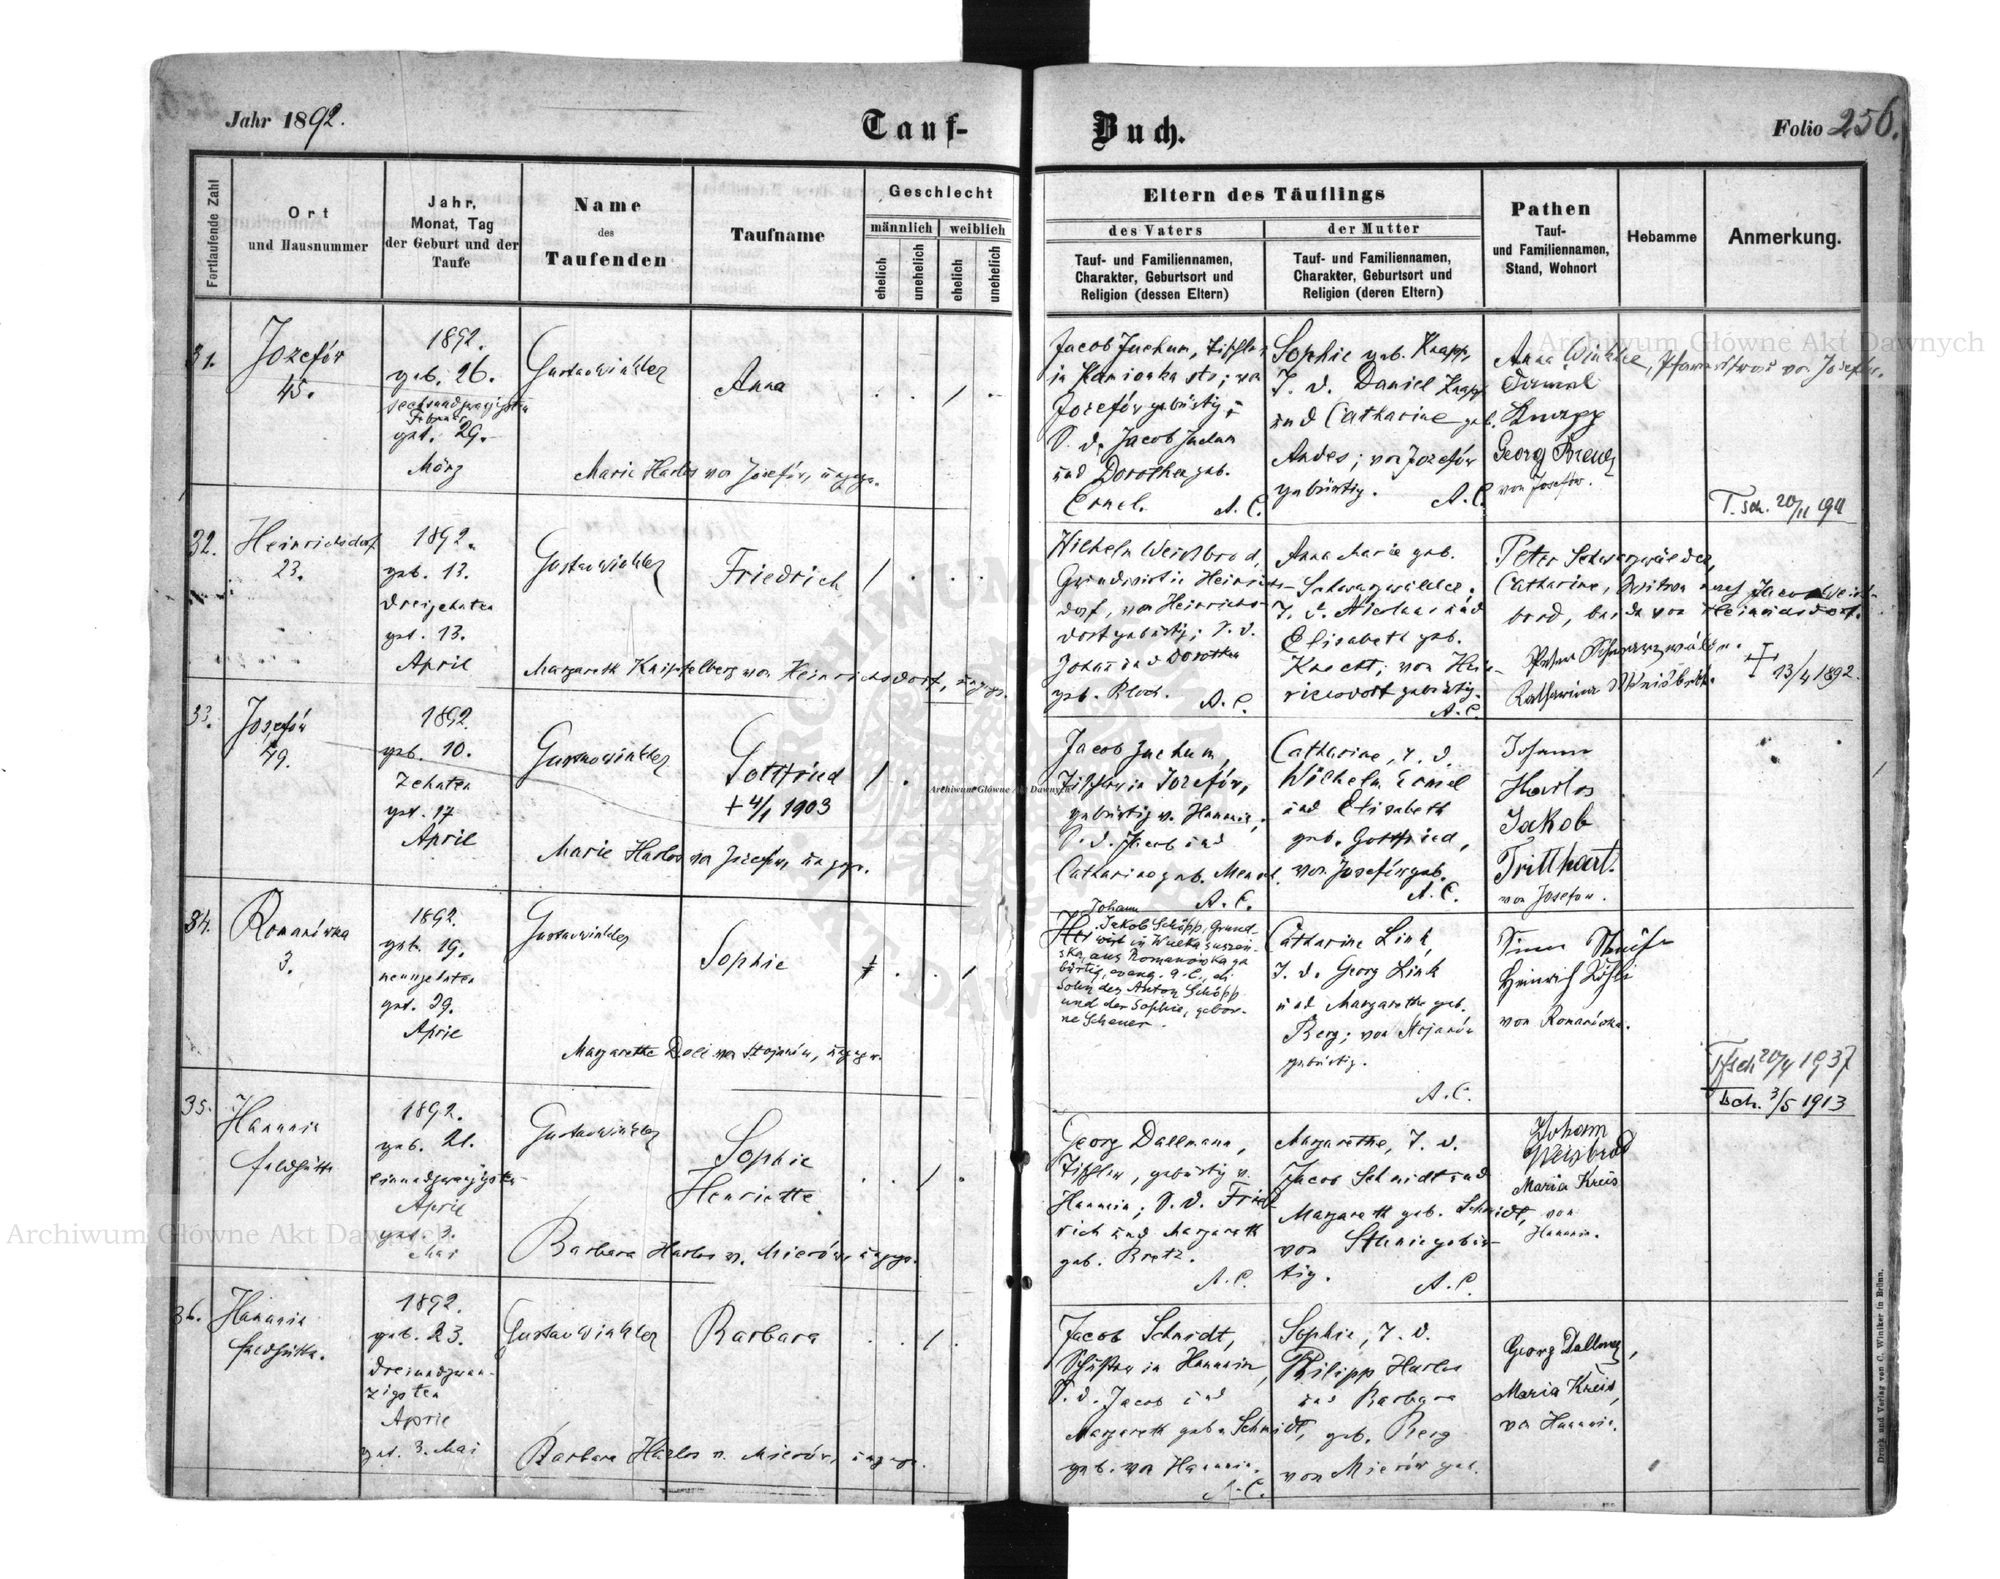 Jahr 1892.
Tauf-
Buch.
Folio 256.
Fortlaufende Zahl
Ort
und Hausnummer
Jahr,
Monat, Tag
der Geburt und der
Taufe
Name
des
Taufenden
Taufname
Geschlecht
männlich
weiblich
ehelich
unehelich
ehelich
unehelich
Eltern des Täuflings
des Vaters
Tauf- und Familiennamen,
Charakter, Geburtsort und
Religion (dessen Eltern)
der Mutter
Tauf- und Familiennamen,
Charakter, Geburtsort und
Religion (deren Eltern)
Pathen
Tauf-
und Familiennamen,
Stand, Wohnort
Hebamme
Anmerkung.
31.
Jozefów
45.
1892.
geb. 26.
sechsundzwanzigsten
Februar
get. 29.
März
Gustav Winkler
Anna
Marie Harlos von Jozefów,
Jacob Juchum, Tischler
in Kamionka str; von
Jozefów gebürtig;
S. d. Jacob Juchum
und Dorothea geb.
Ermel. A. C.
Sophie geb. Knapp,
T. d. Daniel Knapp
und Catharine geb.
Andes; von Jozefów
gebürtig. A. C.
Anna Winkler, Pfarrersfrau von Josefow.
Daniel
Knapp
Georg
von Josefów.
T. sch. 20/11 1911
32.
Heinrichsdorf
23.
1892.
geb. 13.
dreizehnten
get. 13.
April
Gustav Winkler
Friedrich
Margareth Knippelberg von Heinrichsdorf,
Wilhelm Weissbrod,
Grundwirt in Heinrichs-
dorf, von Heinrichs-
dorf gebürtig; S. d.
Johann und Dorothea
geb. Bloch. A. C.
Anna Marie geb.
Schwarzwälder;
T. d. Nicolaus und
Elisabeth geb.
Knecht; von Hein-
richsdorf gebürtig.
A. C.
Peter Schwarzwälder,
Catharine, Witwe nach Jacob Weiss-
brod, beide von Heinrichsdorf.
Peter Schwarzwälder.
Katharina Weisbrod.
† 13/4 1892.
33.
Josefów
49.
1892.
geb. 10.
Zehnten
get. 17
April
Gustav Winkler
Gottfried
+ 4/1 1903
Marie Harlos von Jozefów,
Jacob Juchum,
Tischler in Jozefów,
gebürtig v. Hanunin;
S. d. Jacob und
Catharine geb. Mensch.
A. C.
Catharine, T. d.
Wilhelm Ermel
und Elisabeth
geb. Gottfried,
von Josefów geb.
A. C.
Johann
Harlos
Jakob
Tritthart.
von Josefow.
34.
Romanówka
3.
1892.
geb. 19.
neunzehnten
get. 29.
April
Gustav Winkler
Sophie
Margarethe Doll von Stojanów,
Johann
Jakob Schöpp, Grund-
wirt in Wulka suszań-
ska, aus Romanówka ge-
bürtig, evang. A. C., ein
Sohn des Anton Schöpp
und der Sophie, gebor-
ne Scheuer.
Catharine Link,
T. d. Georg Link
und Margarethe geb.
Berg; von Stojanów
gebürtig.
A. C.
Heinrich
von Romanówka.
Tfsch 20/4 1937
Tsch. 3/5 1913
35.
Hanunin
Feldhütte
1892.
geb. 21.
einundzwanzigsten
April
get. 3.
Mai
Gustav Winkler
Sophie
Henriette.
Barbara Harlos v. Mierów,
Georg Dallmann,
Tischler, gebürtig v.
Hanunin; S. d. Fried-
rich und Margareth
geb. Bretz.
A. C.
Margarethe, T. d.
Jacob Schmidt und
Margareth geb. Schmidt,
von Stanin gebür-
tig. A. C.
Johann
Weisbrod
Maria Kreis
von
Hanunin.
36.
Hanunin
Feldhütte.
1892.
geb. 23.
dreiundzwan-
zigsten
April
get. 3. Mai
Gustav Winkler
Barbara
Barbara Harlos v. Mierów,
Jacob Schmidt,
in Hanunin,
S. d. Jacob und
Margareth geb. Schmidt,
geb. von Hanunin.
A. C.
Sophie, T. d.
Philipp Harlos
und Barbara
geb. Berg
von Mierów geb.
Georg Dallmann,
Maria Kreis,
von Hanunin.
Druck und Verlag von C. Winiker in Brünn.
Archiwum Główne Akt Dawnych
Archiwum Główne Akt Dawnych
Archiwum Główne Akt Dawnych